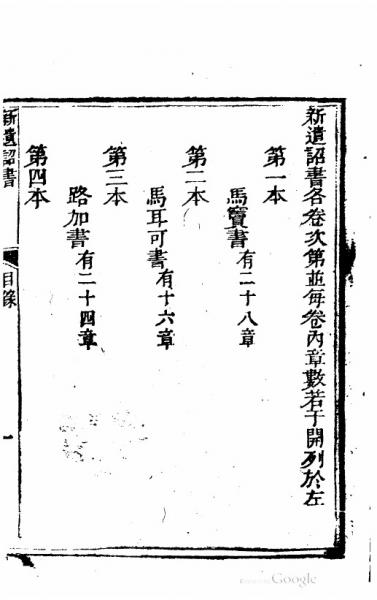 新遺詔書各卷次第並每卷內章數若干開列於左
第一本
馬竇書有二十八章
第二本
馬耳可書有十六章
第三本
路加書有二十四章
第四本
新遺詔書
目錄
一
Google